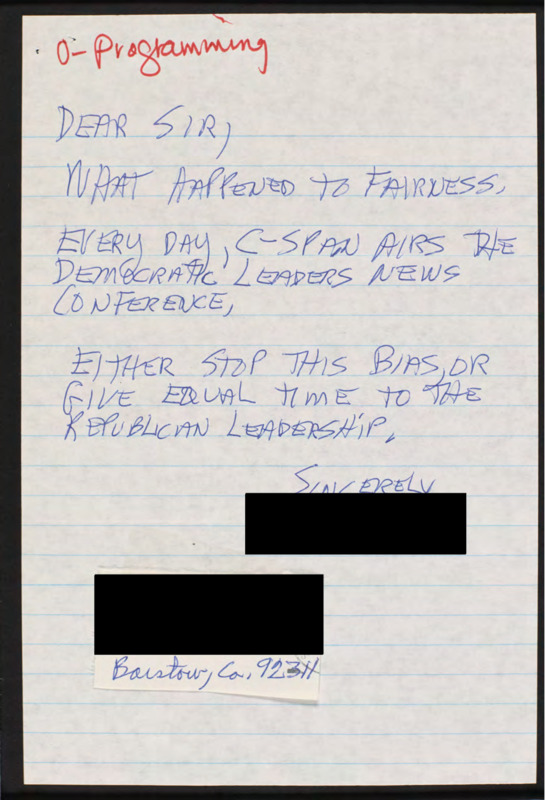 O-Programming
DEAR SIR,
WHAT HAPPENED TO FAIRNESS.
EVERY DAY, C-SPAN AIRS THE
DEMOCRATIC LEADERS NEWS
CONFERENCE,
EITHER STOP THIS BIAS, OR
GIVE EQUAL TIME TO THE
REPUBLICAN LEADERSHIP.
SINCERELY
Barstow, Ca. 92311